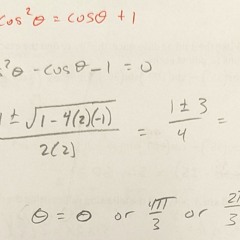 cos²θ = cosθ + 1
s²θ - cosθ - 1 = 0
1 ± √(1 - 4(2)(-1)) / 2(2) = 1 ± 3 / 4 =
θ = θ or 4π/3 or 2π/3